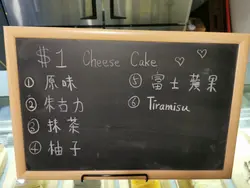 $1 Cheese Cake ♡ ♡
① 原味
② 朱古力
③ 抹茶
④ 柚子
⑤ 富士蘋果
⑥ Tiramisu